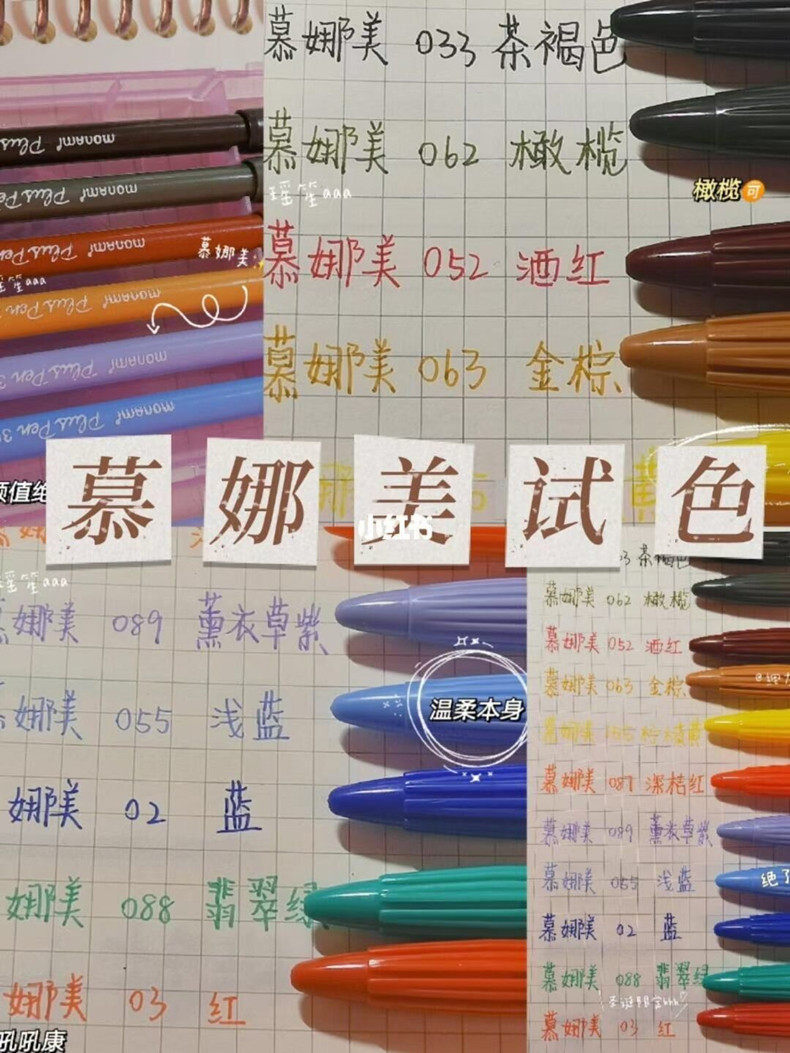 monami Plus Pen
monami Plus Pen
monami Plus Pen
慕娜美
monami Plus Pen
monami Plus Pen 3
monami Plus Pen 3
慕娜美 033 茶褐色
慕娜美 062 橄榄
瑶笙aaa
橄榄 可
慕娜美 052 酒红
慕娜美 063 金棕
颜值绝
慕娜美试色
小红书
瑶笙aaa
娜美 089 薰衣草紫
娜美 055 浅蓝
温柔本身
娜美 02 蓝
娜美 088 翡翠绿
娜美 03 红
吼吼康
33 茶褐色
慕娜美 062 橄榄
慕娜美 052 酒红
慕娜美 063 金棕
慕娜美 087 深桔红
慕娜美 089 薰衣草紫
慕娜美 055 浅蓝
绝了
慕娜美 02 蓝
慕娜美 088 翡翠绿
慕娜美 03 红